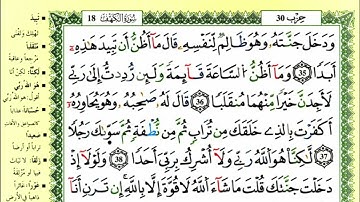 حِزْب 30
سُورَةُ الكَهْفِ 18
وَدَخَلَ جَنَّتَهُۥ وَهُوَ ظَالِمٌ لِّنَفْسِهِۦ قَالَ مَآ أَظُنُّ أَن تَبِيدَ هَٰذِهِۦٓ
أَبَدًا 35 وَمَآ أَظُنُّ السَّاعَةَ قَآئِمَةً وَلَئِن رُّدِدتُّ إِلَىٰ رَبِّي
لَأَجِدَنَّ خَيْرًا مِّنْهُمَا مُنقَلَبًا 36 قَالَ لَهُۥ صَاحِبُهُۥ وَهُوَ يُحَاوِرُهُۥٓ
أَكَفَرْتَ بِالَّذِي خَلَقَكَ مِن تُرَابٍ ثُمَّ مِن نُّطْفَةٍ ثُمَّ سَوَّىٰكَ رَجُلًا
37 لَّٰكِنَّا هُوَ اللَّهُ رَبِّي وَلَآ أُشْرِكُ بِرَبِّيَ أَحَدًا 38 وَلَوْلَآ إِذْ
دَخَلْتَ جَنَّتَكَ قُلْتَ مَا شَآءَ اللَّهُ لَا قُوَّةَ إِلَّا بِاللَّهِ إِن تَرَنِۦ أَنَا
تبيد
تهلك وتفنى
منقلبا
مرجعا وعاقبة